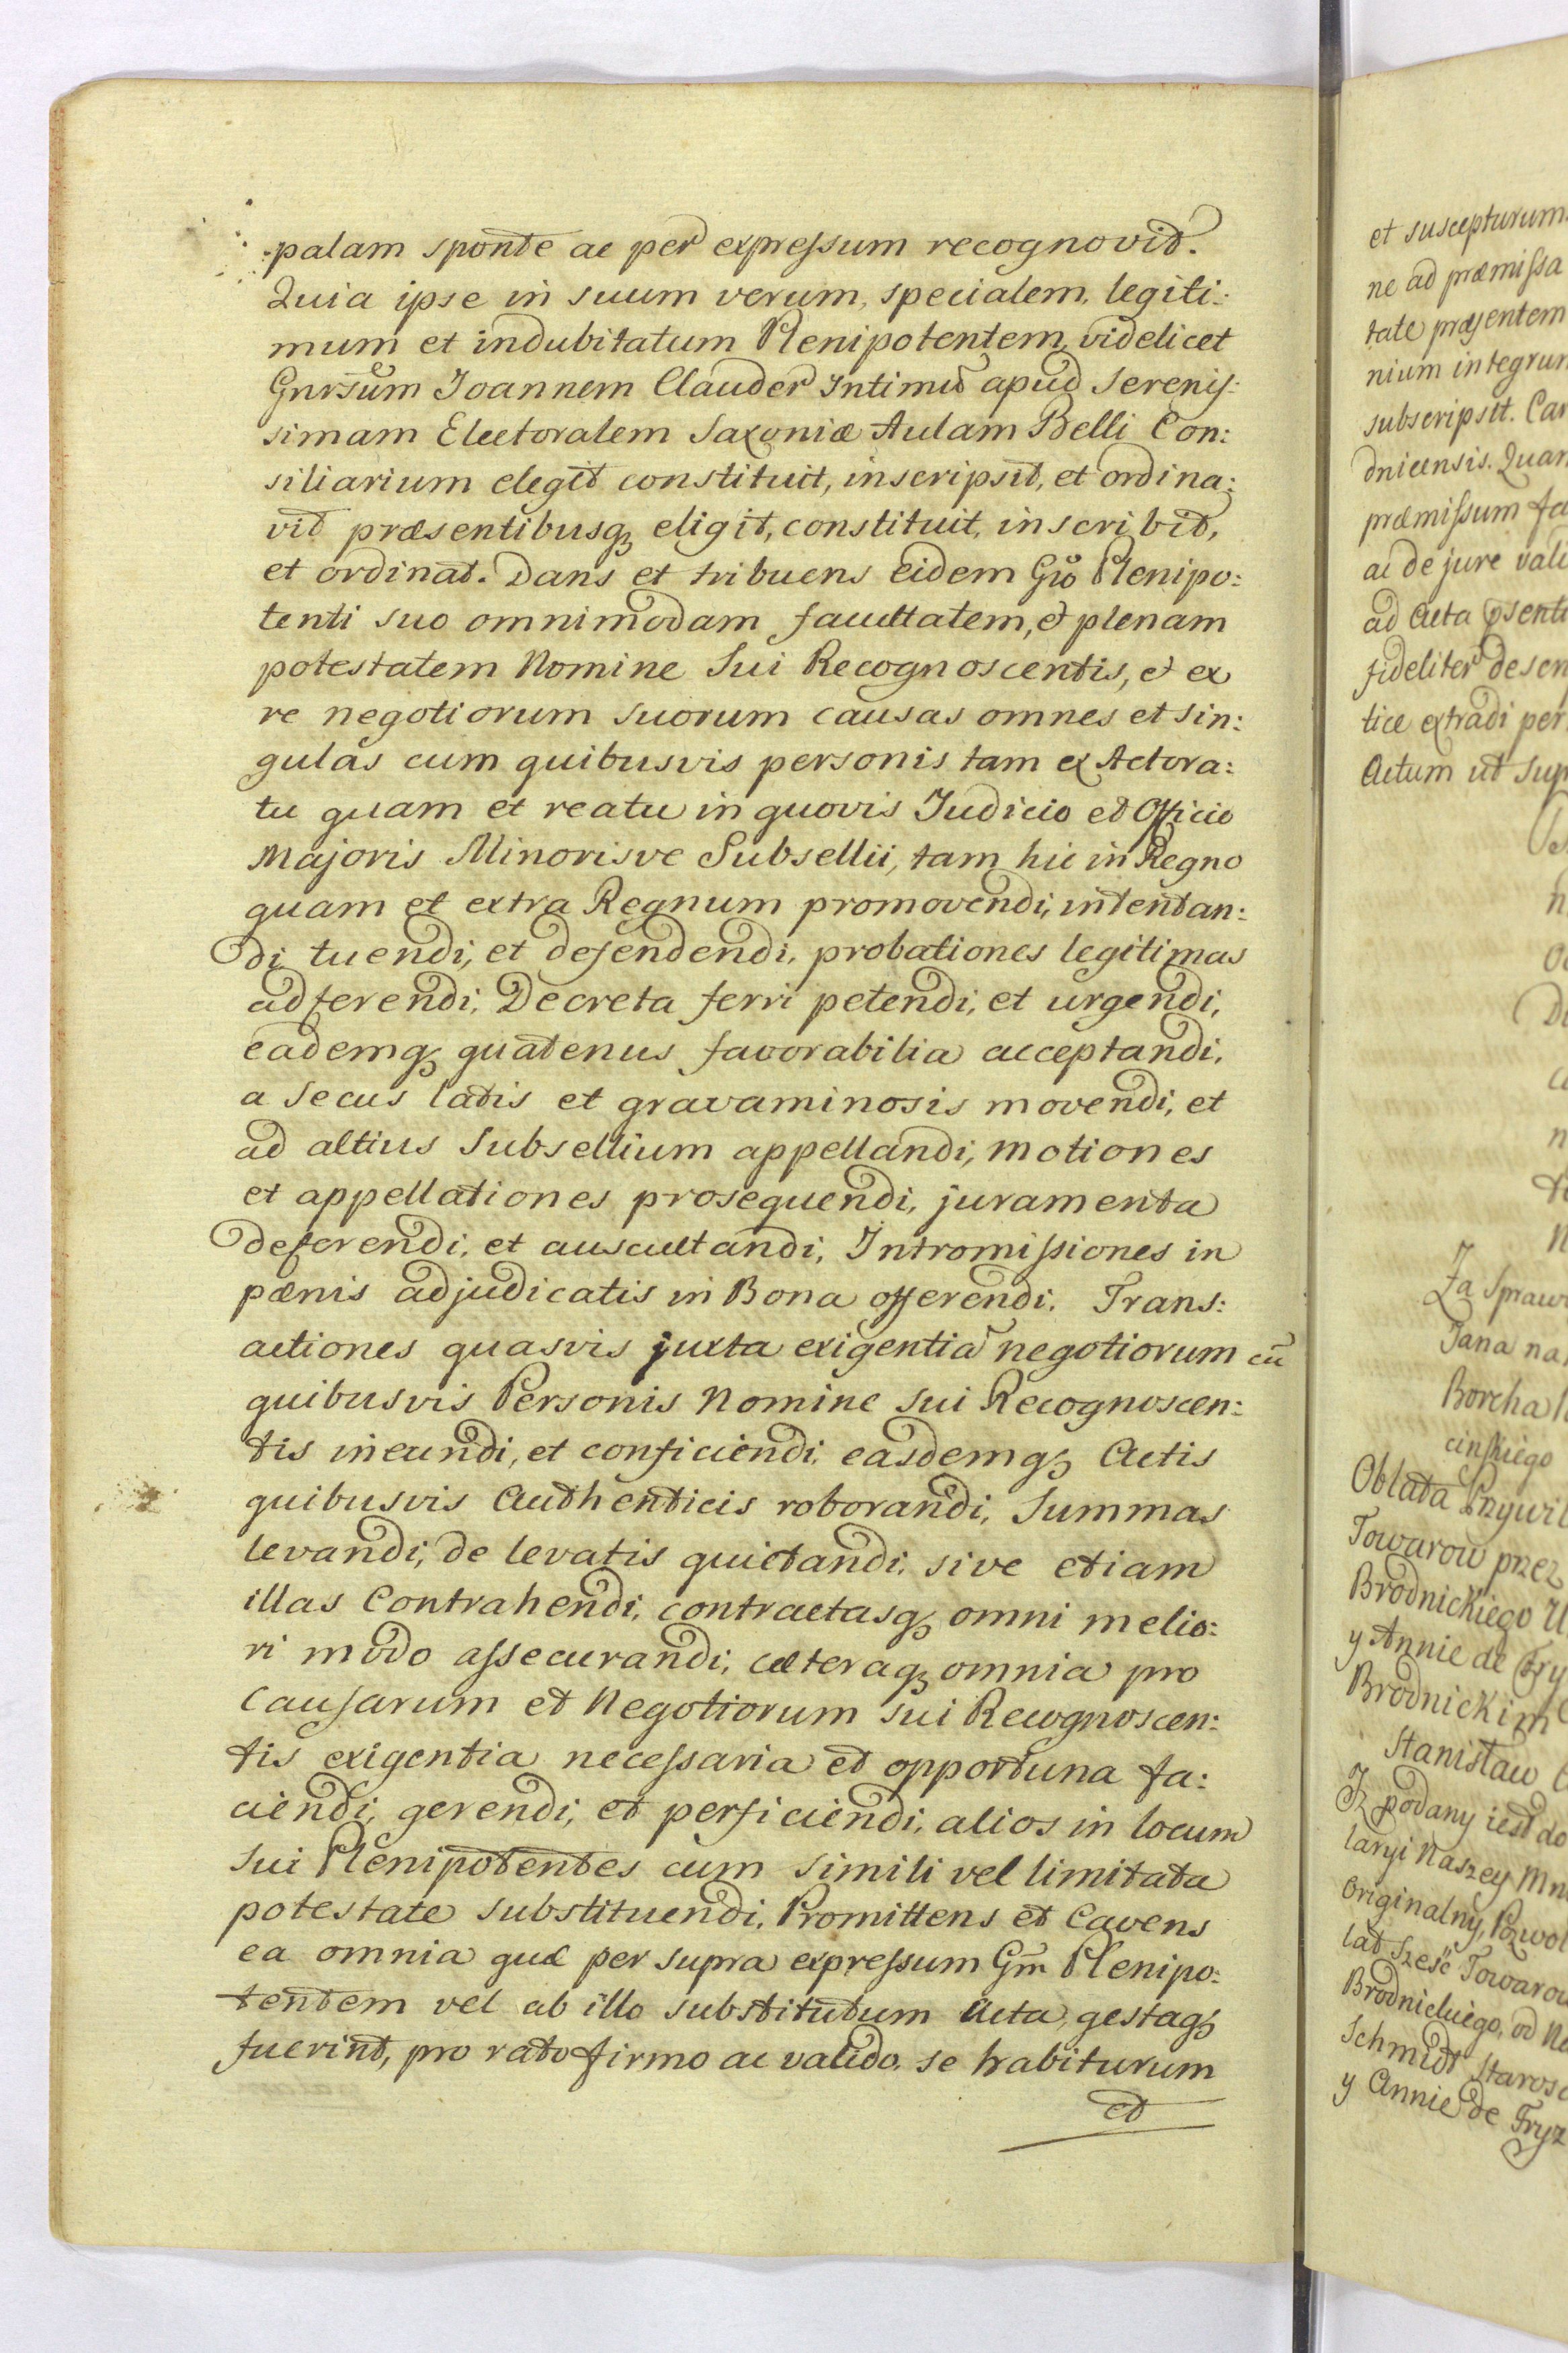 palam sponte ac per expressum recognovit.
Quia ipse in suum verum, specialem, legiti:
mum et indubitatum Plenipotentem, videlicet
Joannem Clauder Intimũ apud Serenis:
simam Electoralem Saxoniæ Aulam Belli Con:
siliarium elegit constituit, inscripsit, et ordina:
vit præsentibusq; eligit, constituit, inscribit,
et ordinat. Dans et tribuens eidem Gõ Plenipo:
tenti suo omnimodam facultatem, et plenam
potestatem Nomine Sui Recognoscentis, et ex
re negotiorum suorum causas omnes et sin:
gulas cum quibusvis personis tam ex Actora:
tu quam et reatu in quovis Judicio et Officio
Majoris Minorisve Subsellii, tam hic in Regno
quam et extra Regnum promovendi, intentan:
di tuendi, et defendendi, probationes legitimas
adferendi, Decreta ferri petendi, et urgendi,
eademq; quatenus favorabilia acceptandi,
a secus latis et gravaminosis movendi, et
ad altius Subsellium appellandi, motiones
et appellationes prosequendi, juramenta
deferendi, et auscultandi, Intromissiones in
pænis adjudicatis in Bona offerendi. Trans:
actiones quasvis juxta exigentiã negotiorum cũ
quibusvis Personis Nomine sui Recognoscen:
tis ineundi, et conficiendi, easdemq; Actis
quibusvis Authenticis roborandi, Summas
levandi, de levatis quietandi, sive etiam
illas Contrahendi, contractasq; omni melio:
ri modo assecurandi, cæteraq; omnia pro
Causarum et Negotiorum sui Recognoscen:
tis exigentia necessaria et opportuna fa:
ciendi, gerendi, et perficiendi, alios in locum
sui Plenipotentes cum simili vel limitata
potestate substituendi. Promittens et Cavens
ea omnia quæ per supra expressum Gm̃ Plenipo:
tentem vel ab illo substitutum Acta, gestaq;
fuerint, pro rato firmo ac valido, se habiturum
et
et suscepturum
ne ad præmissa
tate præsentem
nium integrum
subscripsit.
dnicensis.
præmissum
ac de jure
ad Acta
fideliter
tice extradi
Actum ut
Za
Jana
Borcha
cinskiego
Oblata
Towarow przez
Brodnickiego
y Annie de
Brodnickim
Stanisław
Jz podany iest do
Naszey
Originalny,
lat Sześć
Brodnickiego, od
Schmidt
y Annie de